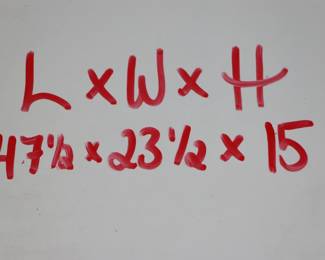 L x W x H
47 1/2 x 23 1/2 x 15